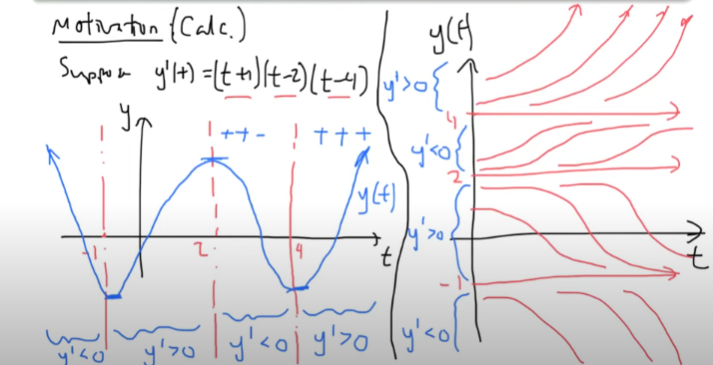 Motivation (Calc.)
Suppose y'(t) = (t+1)(t-2)(t-4)
y
++-
+++
y(t)
-1
2
4
t
y'<0
y'>0
y'<0
y'>0
y(t)
y'>0
4
y'<0
2
y'>0
-1
y'<0
t